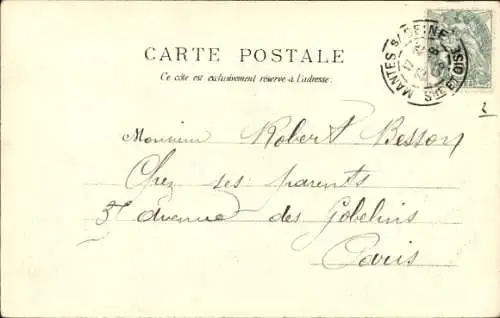 CARTE POSTALE
Ce côté est exclusivement réservé à l'adresse.
MANTES S/ SEINE
SNE ET OISE
Monsieur Robert Besson
Chez ses parents
avenue des Gobelins
Paris